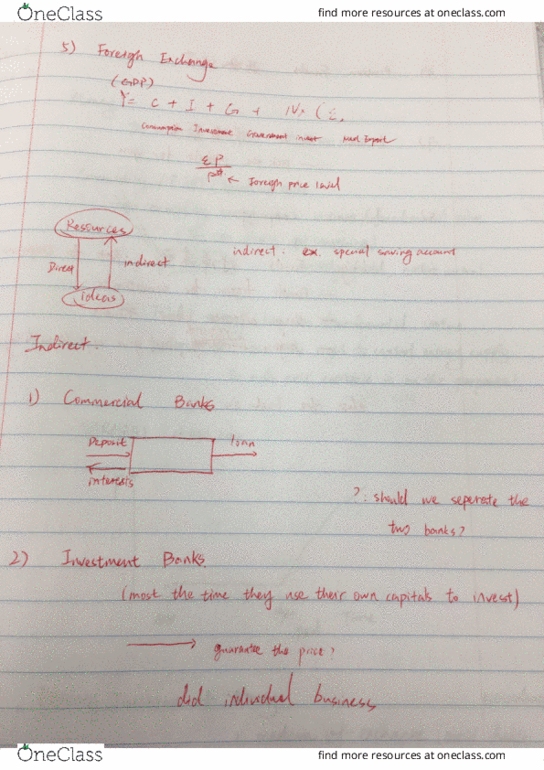 OneClass
find more resources at oneclass.com
5) Foreign Exchange
(GDP)
Y = C + I + G + NX (
Consumption Investment Government invest
εP
P* ← foreign price level
Ressources
Direct
indirect
ideas
indirect. ex. special saving account
Indirect.
1) Commercial Banks
Deposit
loan
interests
?: should we seperate the
two banks?
2) Investment Banks
(most the time they use their own capitals to invest)
→ guarantee the price?
did individual business
OneClass
find more resources at oneclass.com